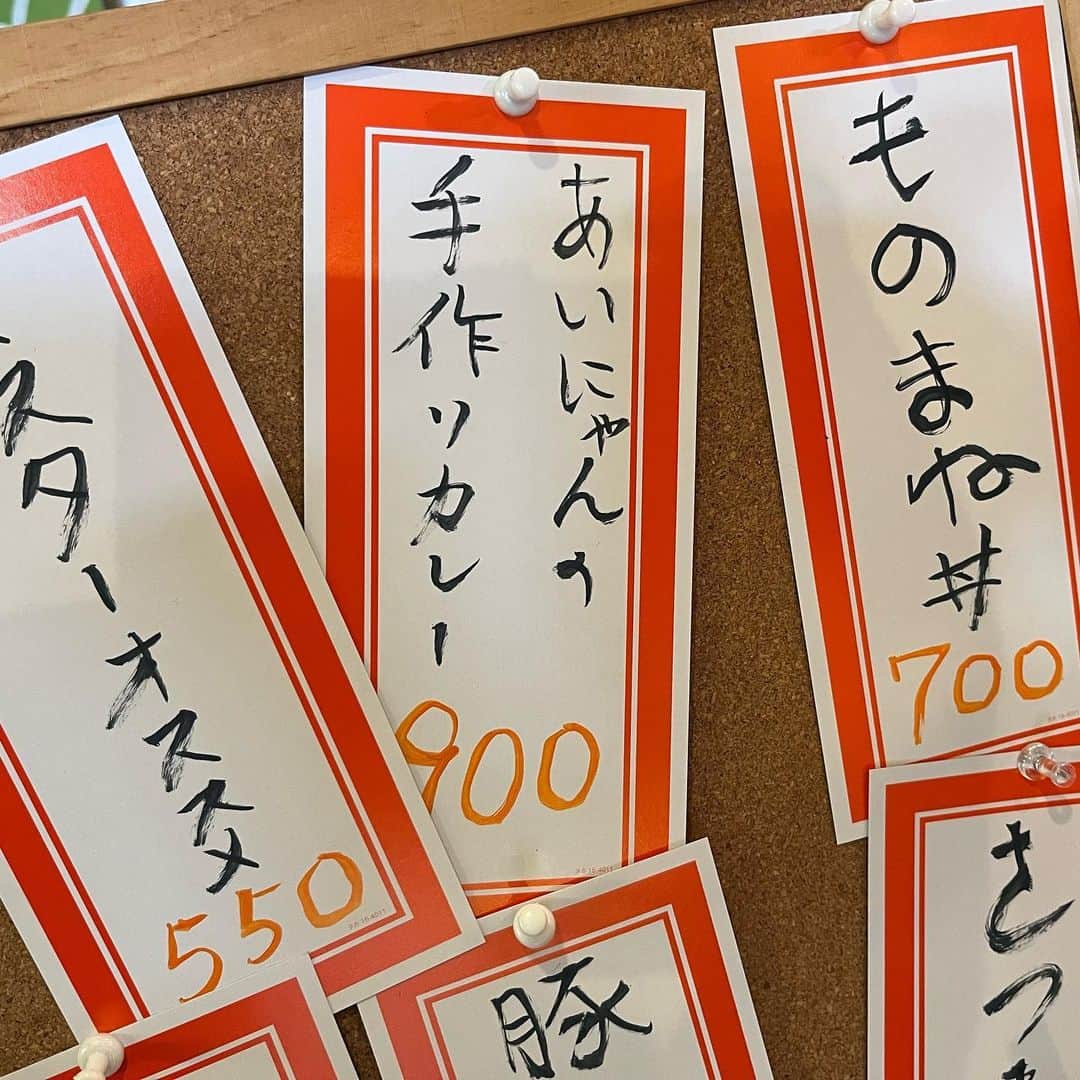 ものまね丼
700
あいにゃんの
手作りカレー
900
スターオススメ
550
さつ
豚